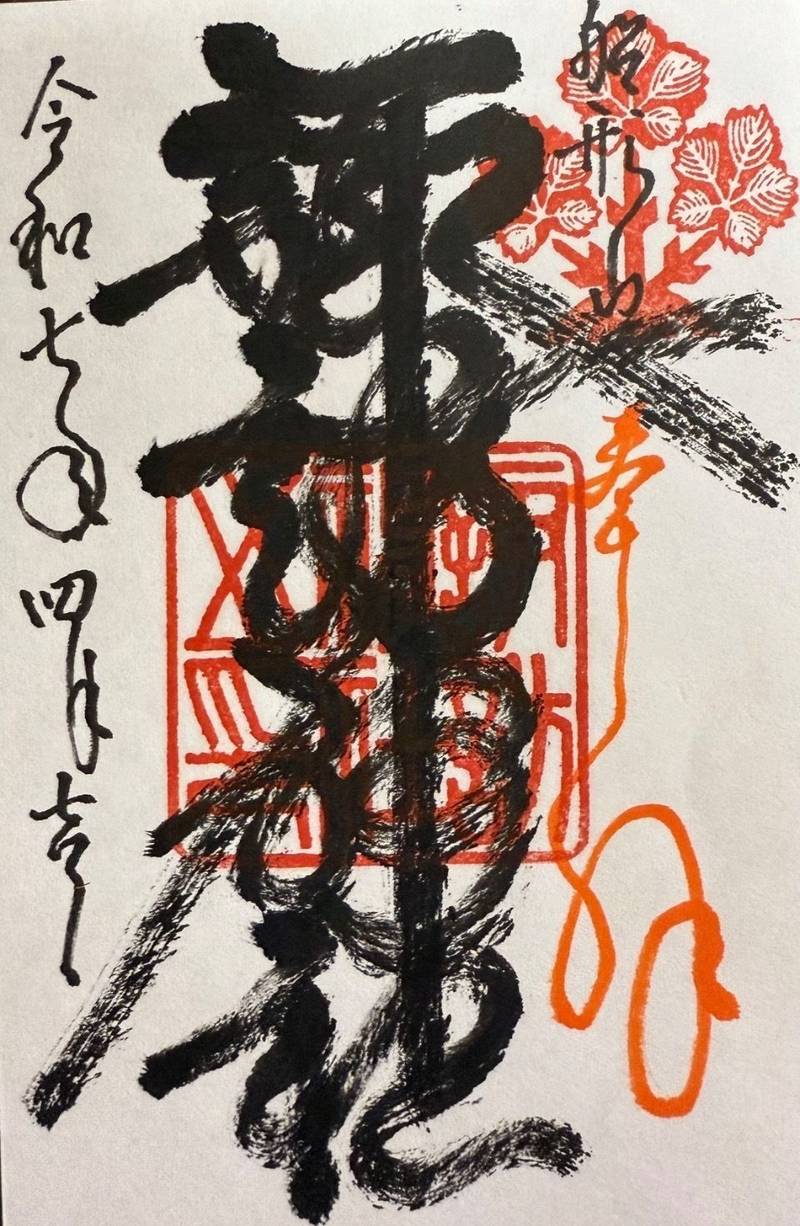 船形山
奉拝
諏訪神社
令和七年四月吉日